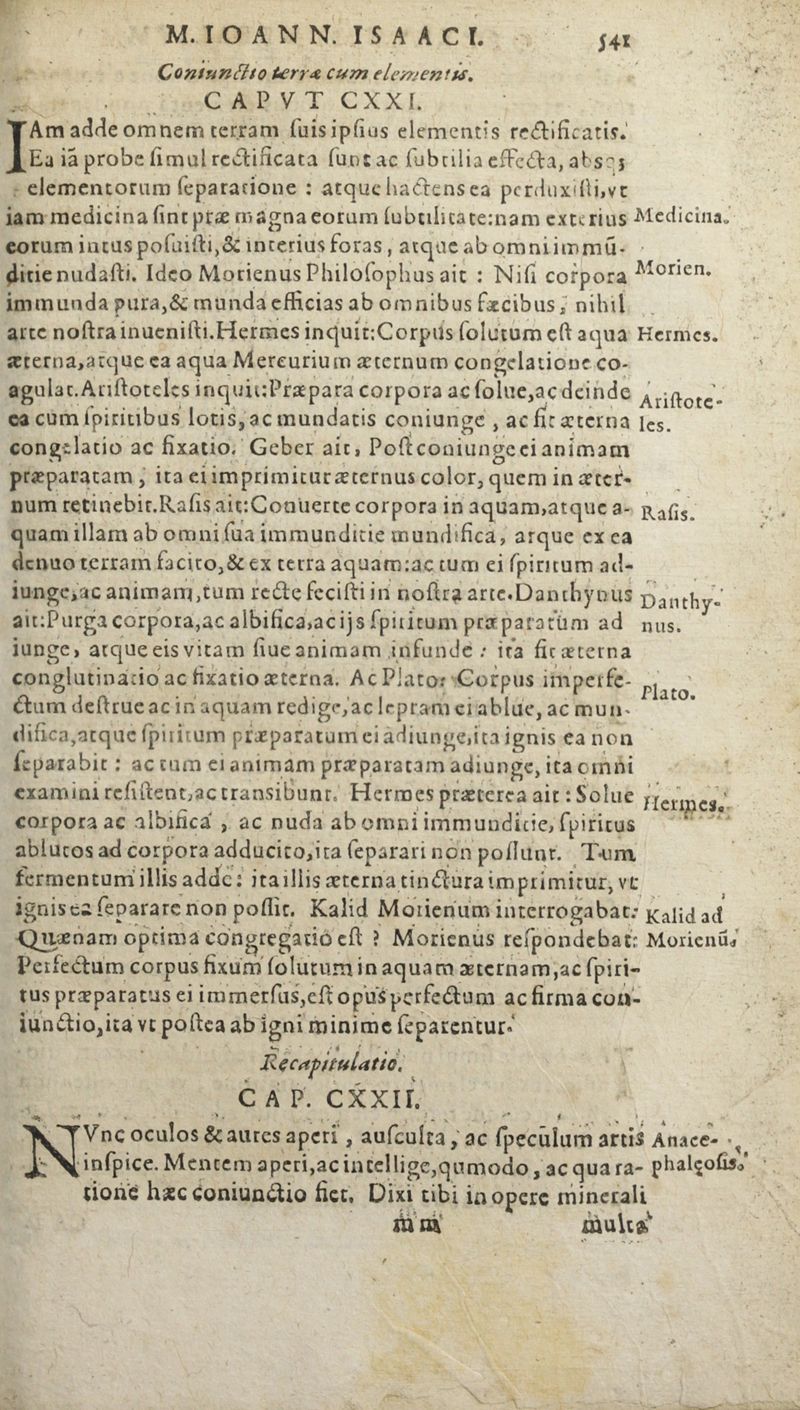 M. IOANN. ISAACI. 541
Coniunctio terræ cum elementis.
CAPVT CXXI.
IAm adde omnem terram suis ipsius elementis rectificatis.
Ea iā probe simul rectificata sunt ac subtilia effecta, absq;
elementorum separatione : atque hactens ea perduxisti, vt
iam medicina sint præ magna eorum subtilitate: nam exterius Medicina.
eorum intus posuisti, & interius foras, atque ab omni immū-
ditie nudasti. Ideo Morienus Philosophus ait : Nisi corpora Morien.
immunda pura, & munda efficias ab omnibus fæcibus, nihil
arte nostra inuenisti. Hermes inquit: Corpus solutum est aqua Hermes.
æterna, atque ea aqua Mercurium æternum congelatione co-
agulat. Aristoteles inquit: Præpara corpora ac solue, ac deinde Aristote-
ea cum spiritibus lotis, ac mundatis coniunge, ac fit æterna les.
congelatio ac fixatio. Geber ait, Post coniunge ei animam
præparatam, ita ei imprimitur æternus color, quem in æter-
num retinebit. Rasis ait: Conuerte corpora in aquam, atque a- Rasis.
quam illam ab omni sua immunditie mundifica, atque ex ea
denuo terram facito, & ex terra aquam: ac tum ei spiritum ad-
iunge, ac animam, tum recte fecisti in nostra arte. Danthynus Danthy-
ait: Purga corpora, ac albifica, ac ijs spiritum præparatum ad nus.
iunge, atque eis vitam siue animam infunde : ita fit æterna
conglutinatio ac fixatio æterna. Ac Plato: Corpus imperfe- Plato.
ctum destrue ac in aquam redige, ac lepram ei ablue, ac mun-
difica, atque spiritum præparatum ei adiunge, ita ignis ea non
separabit : ac tum ei animam præparatam adiunge, ita omni
examini resistent, ac transibunt. Hermes præterea ait : Solue Hermes.
corpora ac albifica, ac nuda ab omni immunditie, spiritus
ablutos ad corpora adducito, ita separari non possunt. Tum
fermentum illis adde: ita illis æterna tinctura imprimitur, vt
ignis ea separare non possit. Kalid Morienum interrogabat: Kalid ad
Quænam optima congregatio est ? Morienus respondebat: Morienū.
Perfectum corpus fixum solutum in aquam æternam, ac spiri-
tus præparatus ei immersus, est opus perfectum ac firma con-
iunctio, ita vt postea ab igni minime separentur.
Recapitulatio.
CAP. CXXII.
NVnc oculos & aures aperi, ausculta, ac speculum artis Anace-
inspice. Mentem aperi, ac intellige, qumodo, ac qua ra- phalęosis.
tione hæc coniunctio fiet. Dixi tibi in opere minerali
m m multa